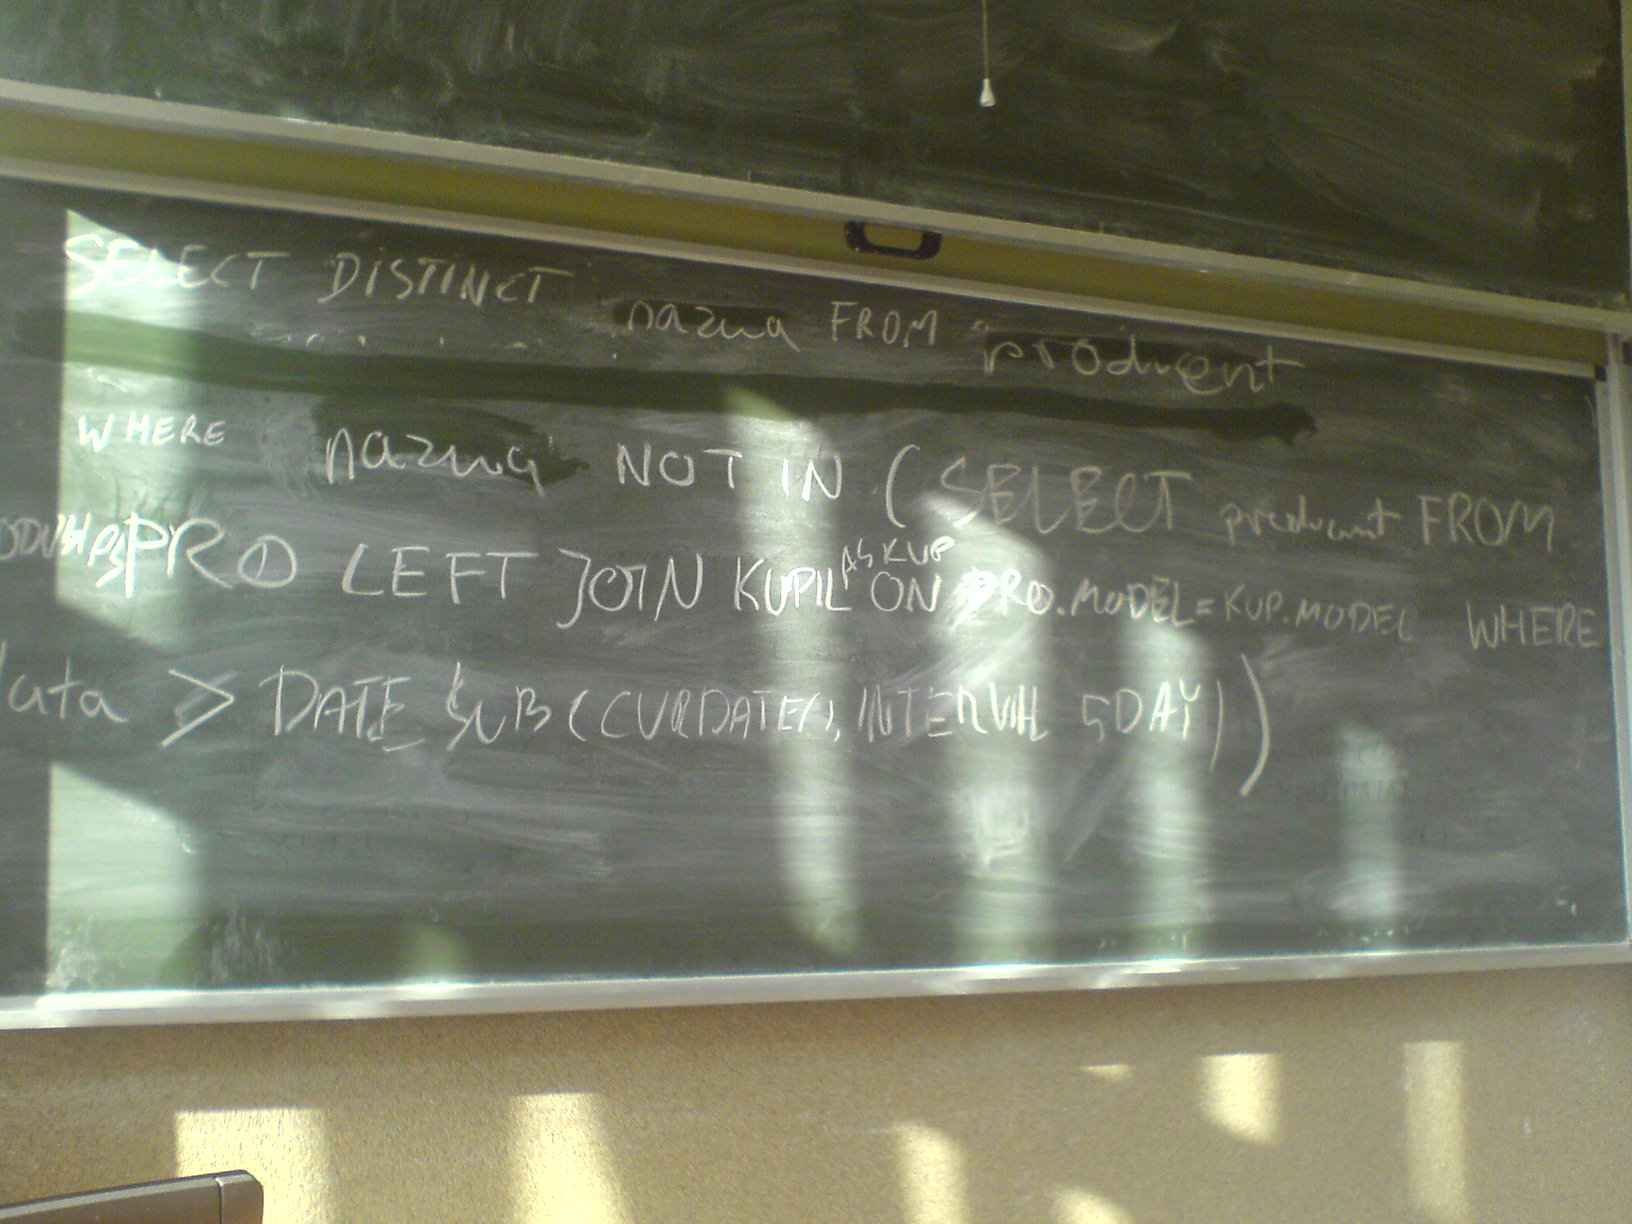 SELECT DISTINCT nazwa FROM producent
WHERE nazwa NOT IN (SELECT producent FROM
PRO LEFT JOIN KUPIL AS KUP ON PRO.MODEL=KUP.MODEL WHERE
data > DATE_SUB(CURDATE(), INTERVAL 5DAY))